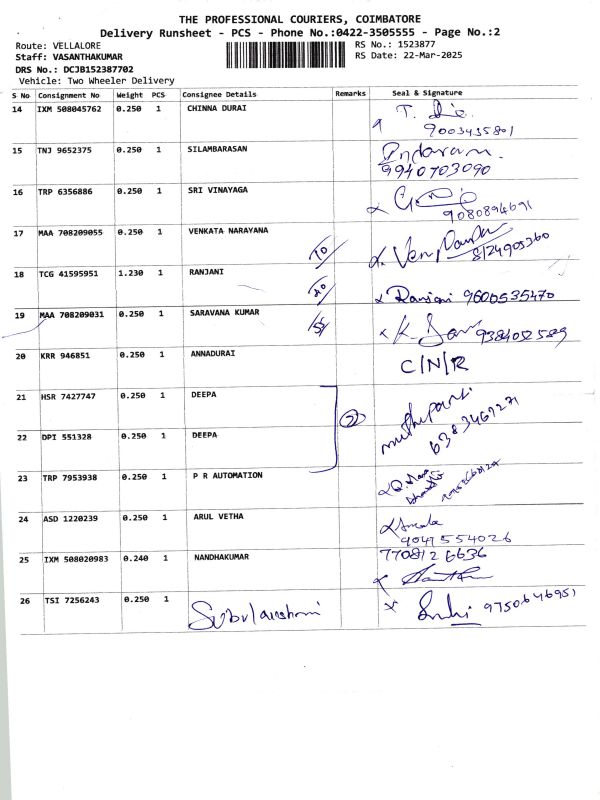 THE PROFESSIONAL COURIERS, COIMBATORE
Delivery Runsheet - PCS - Phone No.:0422-3505555 - Page No.:2
Route: VELLALORE
RS No.: 1523877
Staff: VASANTHAKUMAR
RS Date: 22-Mar-2025
DRS No.: DCJB152387702
Vehicle: Two Wheeler Delivery
S No Consignment No Weight PCS Consignee Details Remarks Seal & Signature
14 IXM 508045762 0.250 1 CHINNA DURAI
9003435801
15 TNJ 9652375 0.250 1 SILAMBARASAN
9940703090
16 TRP 6356886 0.250 1 SRI VINAYAGA
9080894691
17 MAA 708209055 0.250 1 VENKATA NARAYANA
8124905360
18 TCG 41595951 1.230 1 RANJANI
x Ranjani 9600535470
19 MAA 708209031 0.250 1 SARAVANA KUMAR
9384052589
20 KRR 946851 0.250 1 ANNADURAI
C/N/R
21 HSR 7427747 0.250 1 DEEPA
2
22 DPI 551328 0.250 1 DEEPA
6383469271
23 TRP 7953938 0.250 1 P R AUTOMATION
24 ASD 1220239 0.250 1 ARUL VETHA
9047554026
25 IXM 508020983 0.240 1 NANDHAKUMAR
7708126636
26 TSI 7256243 0.250 1
9750646951